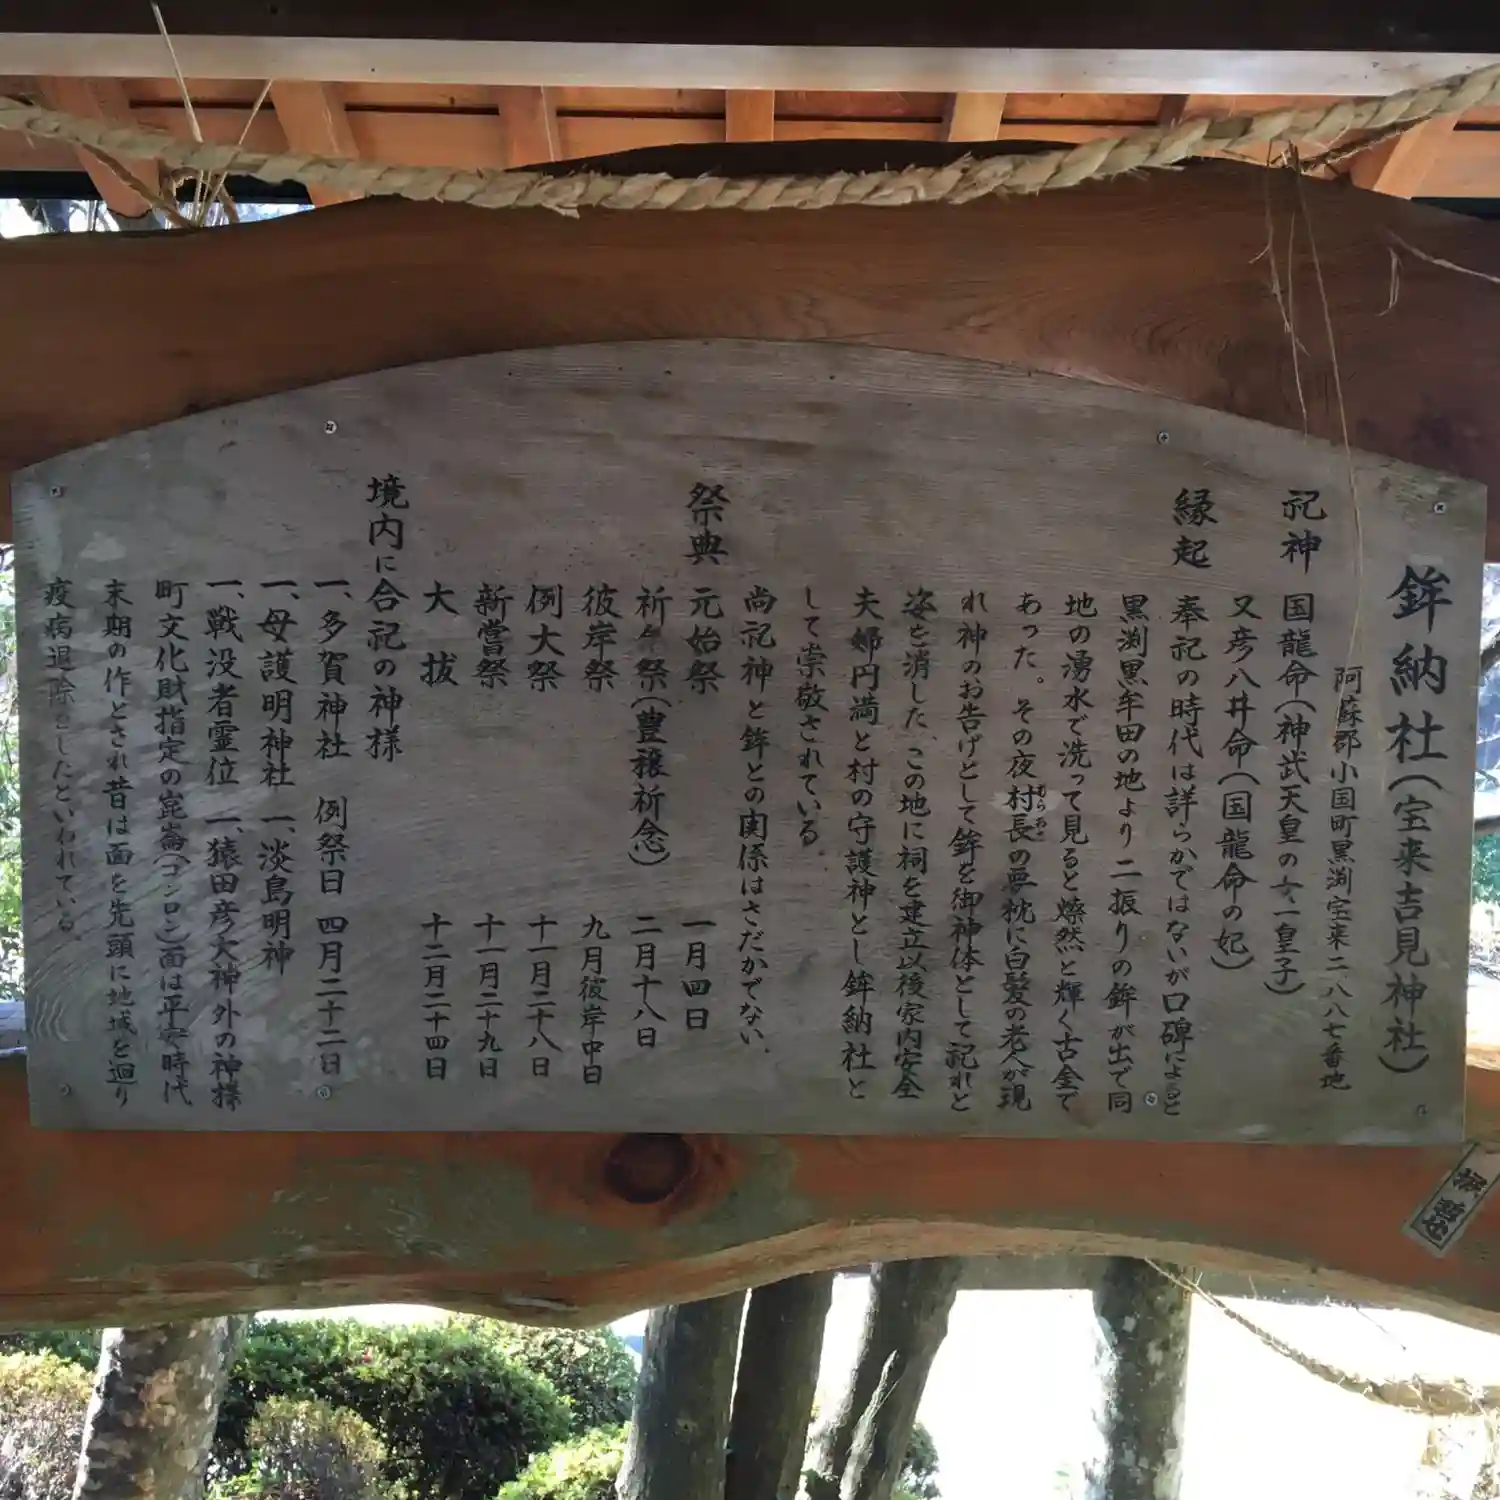 鉾納社(宝来吉見神社)
阿蘇郡小国町黒渕宝来二、八八七番地
祀神 国龍命(神武天皇の第一皇子)
又彦八井命(国龍命の妃)
縁起 奉祀の時代は詳らかではないが口碑によると
黒渕黒牟田の地より二振りの鉾が出で同
地の湧水で洗って見ると燦然と輝く古金で
あった。その夜村長の夢枕に白髪の老人が現
れ神のお告げとして鉾を御神体として祀れと
姿を消した、この地に祠を建立以後家内安全
夫婦円満と村の守護神とし鉾納社と
して崇敬されている。
尚祀神と鉾との関係はさだかでない。
祭典 元始祭 一月四日
祈年祭(豊穣祈念) 二月十八日
彼岸祭 九月彼岸中日
例大祭 十一月二十八日
新嘗祭 十一月二十九日
大拔 十二月二十四日
境内に合祀の神様
一、多賀神社 例祭日 四月二十二日
一、母護明神社 一、淡島明神
一、戦没者霊位 一、猿田彦大神外の神様
町文化財指定の崑崙(コンロン)面は平安時代
末期の作とされ昔は面を先頭に地域を廻り
疫病退除をしたといわれている。